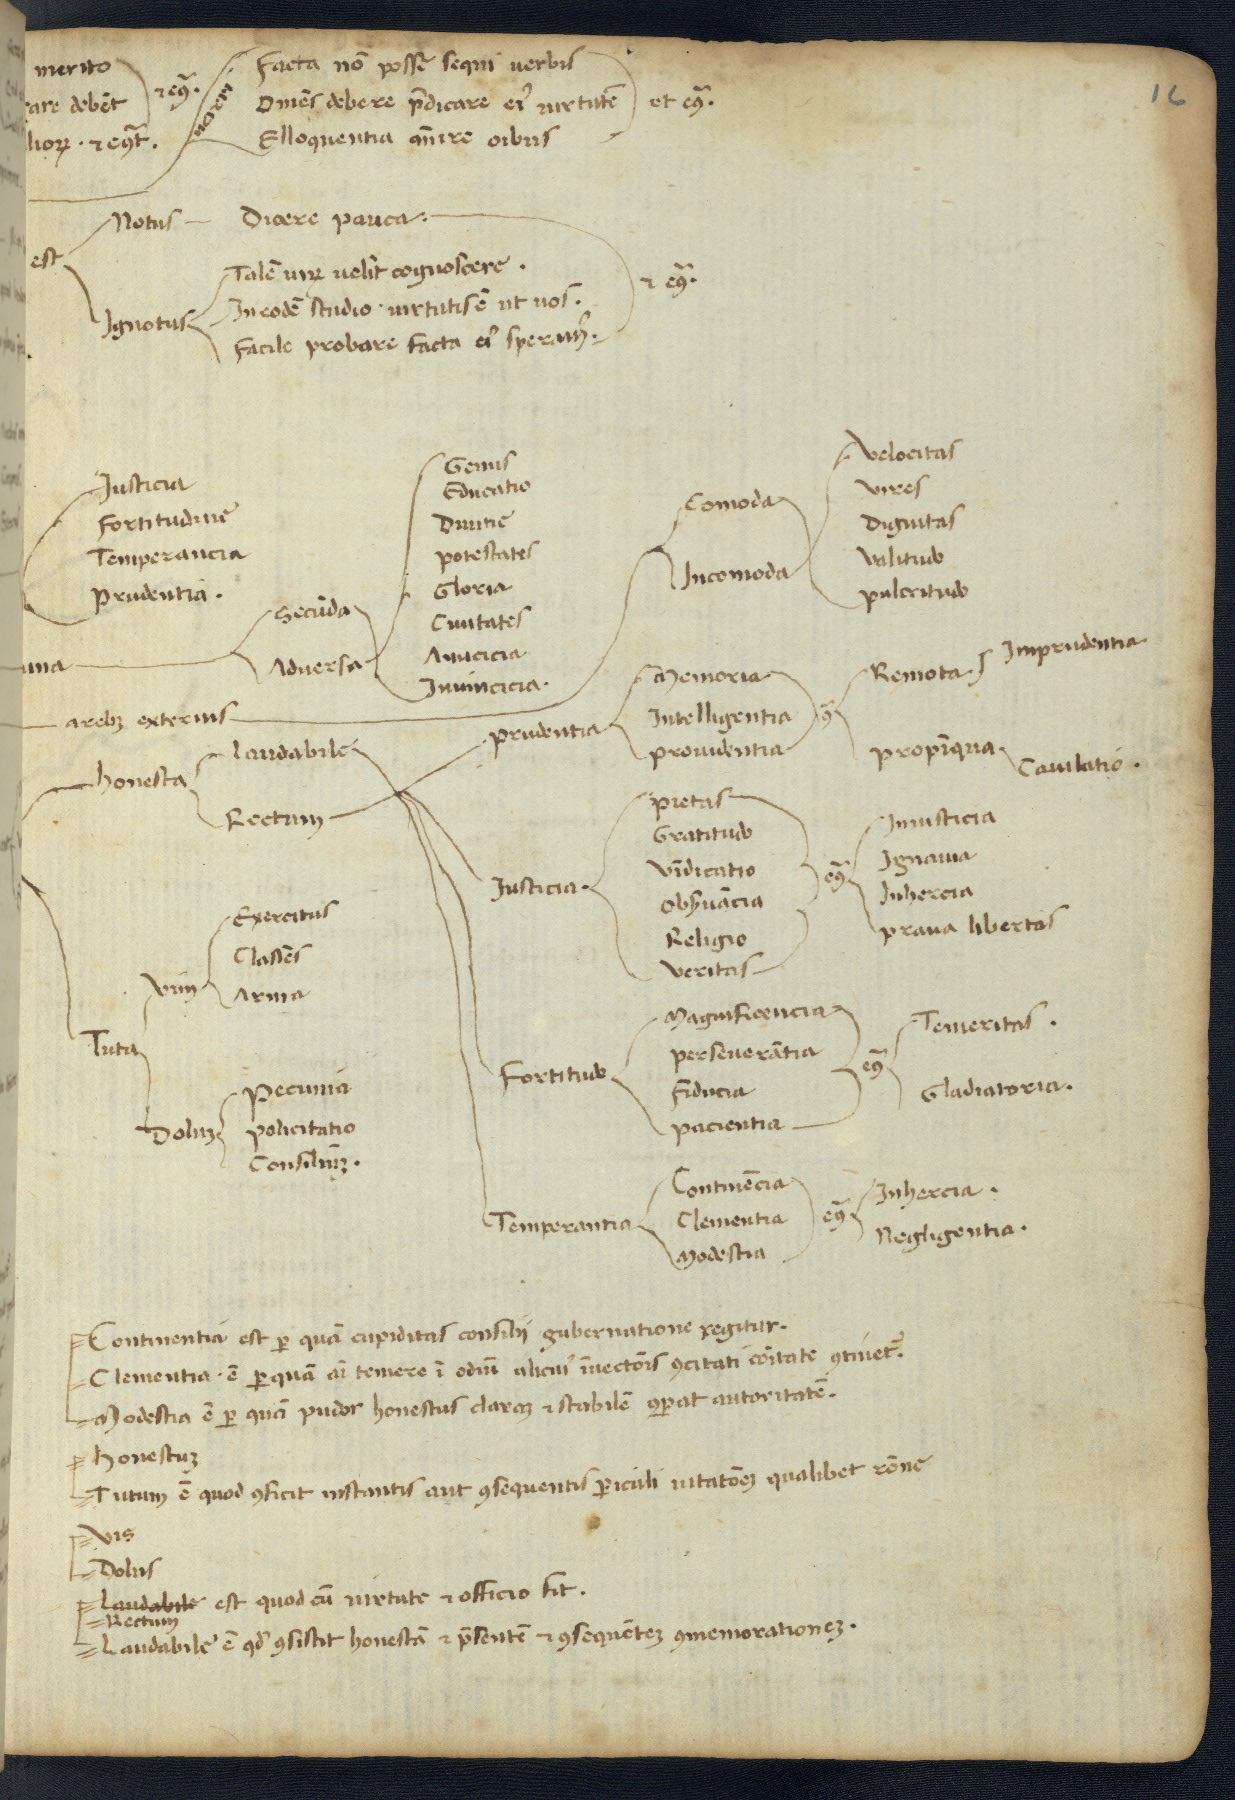 16
merito
are debēt
⁊ eꝯ̄.
liorꝝ · ⁊ eꝯ̄t.
Facta nō posse sequi verbis
Omēs debere p̄dicare eiꝰ uirtutē
Elloquentia q̄nire oibus
et eꝯ̄.
est
Notus
Dicere pauca.
Ignotus
Talē uiꝝ uelīt cognoscere.
In eodē studio uirtutis ē ut uos.
Facile probare facta eiꝰ speramꝰ.
⁊ eꝯ̄.
Justicia
Fortitudine
Temperancia
Prudentia.
una
Secūda
Adversa
Genus
Educatio
Diuitie
potestates
Gloria
Ciuitates
Amicicia
Inimicicia.
arebꝫ externis
Comoda
Incomoda
Velocitas
Vires
Dignitas
Valitudo
pulcritudo
honesta
Laudabile
Rectum
prudentia
Memoria
Intelligentia
prouidentia
Remota
Imprudentia
propīqua
Cauilatio.
Justicia.
pietas
Gratitudo
Vīdicatio
Obsuācia
Religio
Veritas
eꝯ̄
Iniusticia
Ignauia
Inhercia
praua libertas
Tuta
Vim
Exercitus
Classes
Arma
Dolum
Pecunia
policitatio
Consiliuꝫ.
Fortitudo
Magnificencia
perseuerātia
Fiducia
pacientia
eꝯ̄
Temeritas.
Gladiatoria.
Temperantia
Continēcia
Clementia
Modestia
eꝯ̄
Inhercia.
Negligentia.
Continentia est ꝑ quā cupiditas consilij gubernatione regitur.
Clementia · ē ꝑ quā aī temere ī odiū alicuiꝰ īuectōis ꝯcitati cōitate ꝯtinet̄.
Modestia ē ꝑ quā pudor honestus claraꝫ ⁊ stabilē ꝯꝑat autoritatē.
honestuꝫ
Tutum ē quod ꝯficit instantis aut ꝯsequentis ꝑiculi uitatōeꝫ qualibet rōne
Vis
Dolus
Laudabile est quod cū uirtute ⁊ officio fit.
Rectum
Laudabile ē qd̄ ꝯsistit honestā ⁊ p̄sentē ⁊ ꝯsequēteꝫ ꝯmemorationeꝫ.